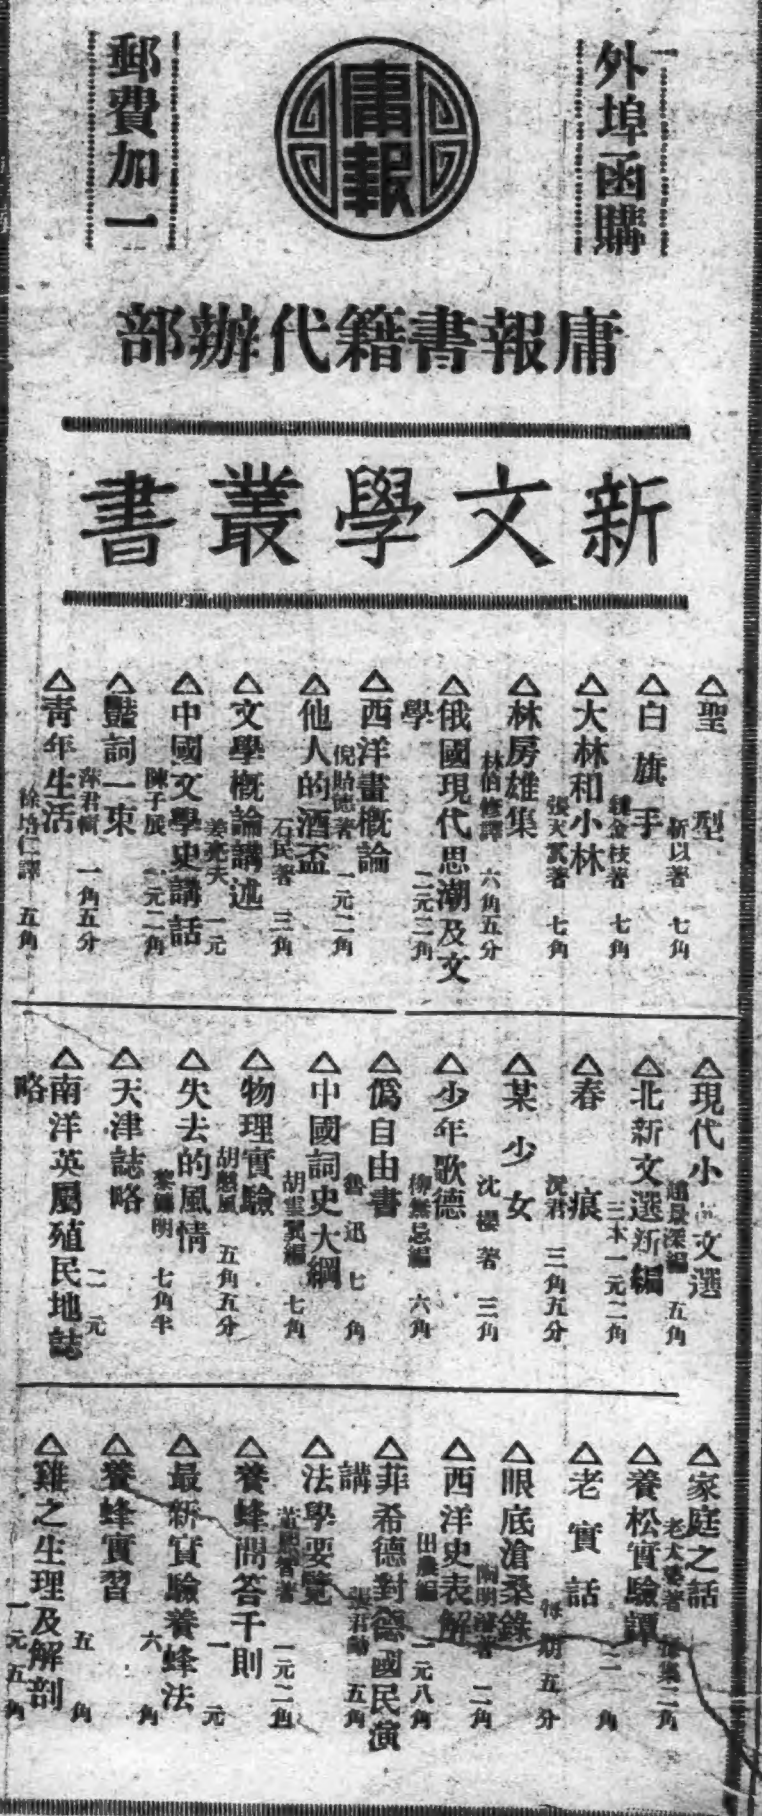 外埠函購
庸報
郵費加一
庸報書籍代辦部
新文學叢書
△聖型
靳以著 七角
△白旗手
魏金枝著 七角
△大林和小林
張天翼著 七角
△林房雄集
林伯修譯 六角五分
△俄國現代思潮及文
學 二元二角
△西洋畫概論
倪貽德著 一元二角
△他人的酒盃
石民著 三角
△文學概論講述
姜亮夫 一元
△中國文學史講話
陳子展 一元二角
△豔詞一束
一角五分
△青年生活
徐培仁譯 五角
△現代小品文選
趙景深編 五角
△北新文選新編
三本一元二角
△春痕
沅君 三角五分
△某少女
沈櫻著 三角
△少年歌德
柳無忌編 六角
△僞自由書
魯迅 七角
△中國詞史大綱
胡雲翼編 七角
△物理實驗
胡憨風 五角五分
△失去的風情
黎錦明 七角半
△天津誌略
二元
△南洋英屬殖民地誌
略
△家庭之話
老太婆著 二角
△養松實驗譚
二角
△老實話
五分
△眼底滄桑錄
二角
△西洋史表解
田農編 一元八角
△菲希德對德國民演
講 張君勱 五角
△法學要覽
一元二角
△養蜂問答千則
一元
△最新實驗養蜂法
六角
△養蜂實習
五角
△雞之生理及解剖
一元五角